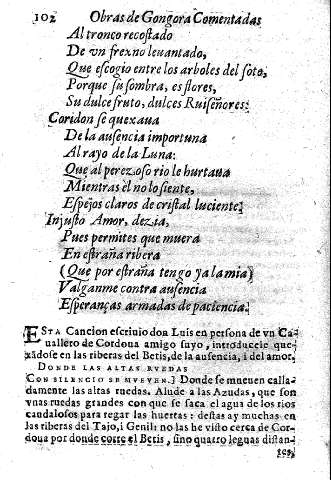 102 Obras de Gongora Comentadas
Al tronco recostado
De vn frexno leuantado,
Que escogio entre los arboles del soto,
Porque su sombra, es flores,
Su dulce fruto, dulces Ruiseñores:
Coridon se quexaua
De la ausencia importuna
Al rayo de la Luna:
Que al perezoso rio le hurtaua
Mientras èl no lo siente,
Espejos claros de cristal luciente;
Injusto Amor, dezia,
Pues permites que muera
En estraña ribera
(Que por estraña tengo ya la mia)
Valganme contra ausencia
Esperanças armadas de paciencia.
ESTA Cancion escriuio don Luis en persona de vn Ca-
uallero de Cordoua amigo suyo, introducele que-
xãdose en las riberas del Betis, de la ausencia, i del amor.
DONDE LAS ALTAS RVEDAS
CON SILENCIO SE MVEVEN.] Donde se mueuen calla-
damente las altas ruedas. Alude a las Azudas, que son
vnas ruedas grandes con que se saca el agua de los rios
caudalosos para regar las huertas: destas ay muchas en
las riberas del Tajo, i Genil: no las he visto cerca de Cor-
doua por donde corre el Betis, sino quatro leguas distan-